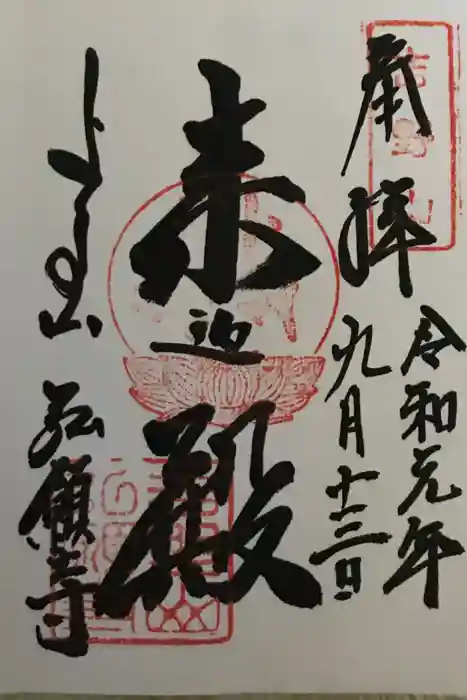 奉拝
令和元年
九月十三日
来迎殿
よし山
弘願寺
吉野山